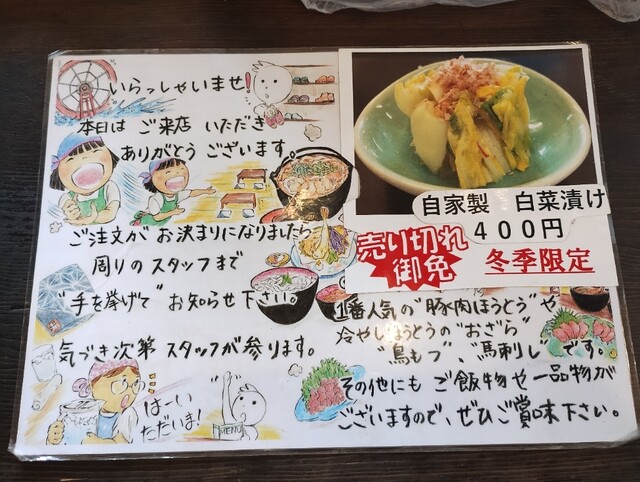 いらっしゃいませ!
本日は ご来店 いただき
ありがとう ございます。
ご注文が お決まりになりましたら
周りのスタッフまで
"手を挙げて" お知らせ 下さい。
気づき次第 スタッフが 参ります。
はーい
ただいま!
MENU
自家製 白菜漬け
400円
売り切れ
御免
冬季限定
1番人気の"豚肉ほうとう"や
冷やしほうとうの"おざら"
"鳥もつ"、"馬刺し"です。
その他にも ご飯物や一品物が
ございますので、ぜひご賞味下さい。